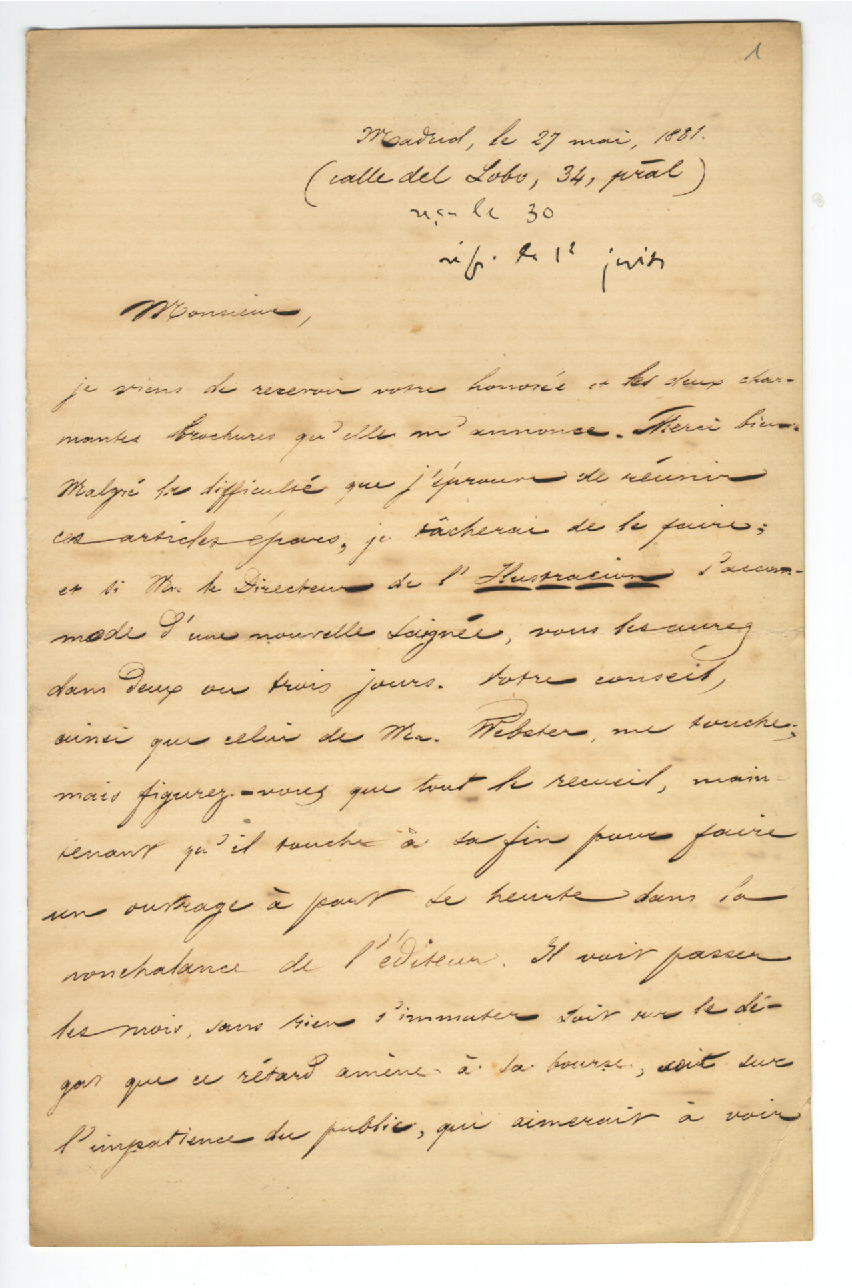 1
Madrid, le 27 mai, 1881.
(calle del Lobo, 34, prāl)
reç. le 30
rép. le 1er juin
Monsieur,
je viens de recevoir votre honorée et les deux char-
mantes brochures qu'elle m'annonce. Merci bien.
Malgré la difficulté que j'éprouve de réunir
ces articles épars, je tâcherai de le faire;
et si Mr. le Directeur de l'Ilustracion s'accom-
mode d'une nouvelle saignée, vous les aurez
dans deux ou trois jours. Votre conseil,
ainsi que celui de Mr. Webster, me touche;
mais figurez-vous que tout le recueil, main-
tenant qu'il touche à sa fin pour faire
un outrage à part se heurte dans la
nonchalance de l'éditeur. Il voit passer
les mois, sans rien s'immuter soit sur le dé-
gas que ce rétard amène à sa bourse, soit sur
l'impatience du public, qui aimerait à voir